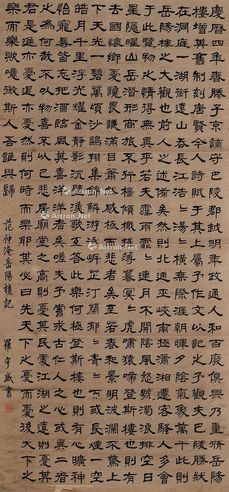 慶曆四年春滕子京謫守巴陵郡越明年政通人和百廢俱興乃重脩岳陽
樓增其舊制刻唐賢今人詩賦于其上屬予作文以記之予觀夫巴陵勝狀
在洞庭一湖銜遠山吞長江浩〻湯〻橫無際涯朝暉夕陰氣象萬千此則
岳陽樓之大觀也前人之述備矣然則北通巫峽南極瀟湘遷客騷人多會
于此覽物之情得無異乎若夫霪雨霏〻連月不開陰風怒號濁浪排空日
星隱曜山岳潛形商旅不行檣傾楫摧薄暮冥〻虎嘯猿啼登斯樓也則有
去國懷鄉憂讒畏譏滿目蕭然感極而悲者矣至若春和景明波瀾不驚上
下天光一碧萬頃沙鷗翔集錦鱗游泳岸芷汀蘭郁〻青〻而或長煙一空
皓月千里浮光躍金靜影沉璧漁歌互答此樂何極登斯樓也則有心曠神
怡寵辱皆忘把酒臨風其喜洋洋者矣嗟夫予嘗求古仁人之心或異二者
之為何哉不以物喜不以己悲居廟堂之高則憂其民處江湖之遠則憂其
君是進亦憂退亦憂然則何時而樂耶其必曰先天下之憂而憂後天下之
樂而樂歟噫微斯人吾誰與歸
范仲淹岳陽樓記 羅宇威書
Artron.Net